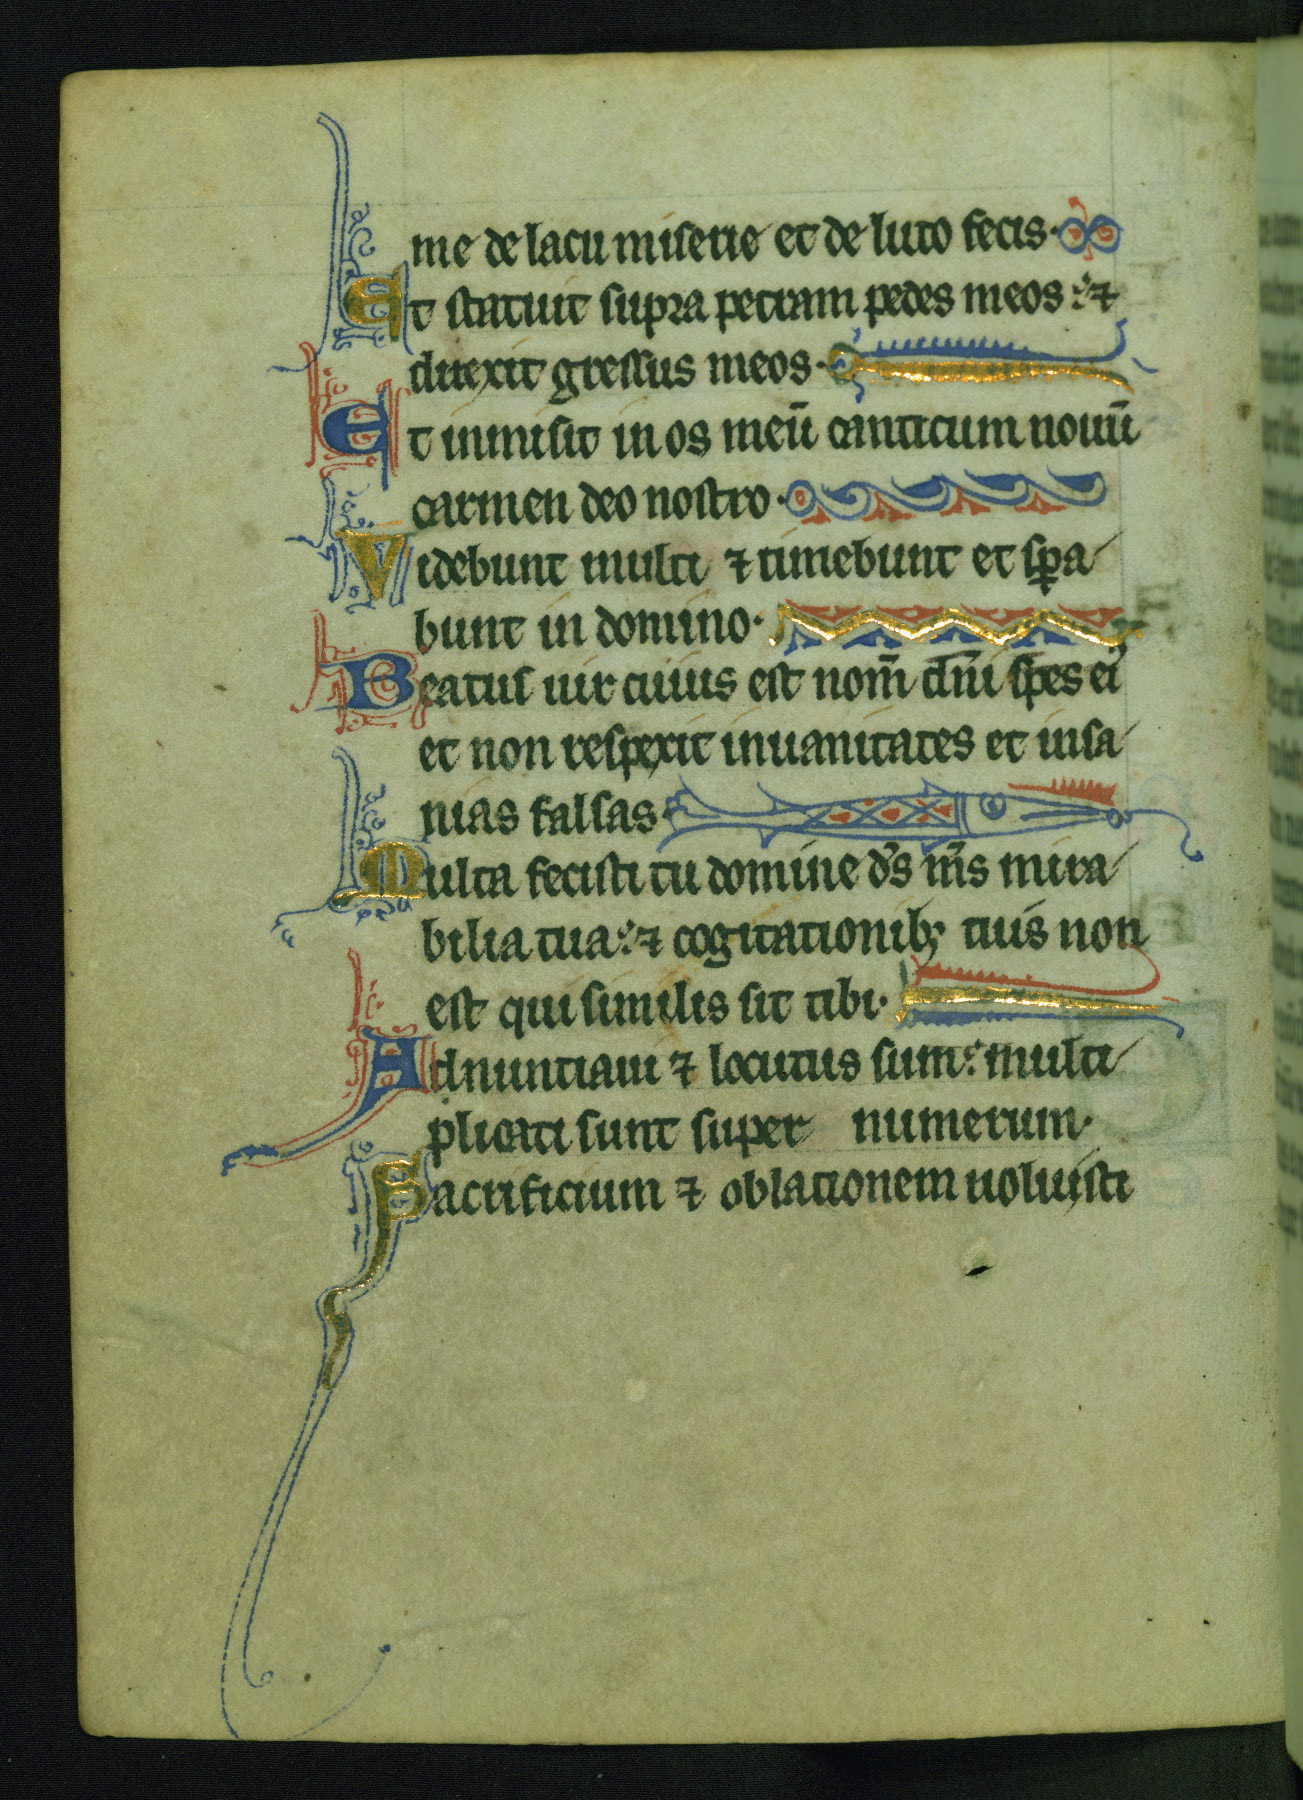 me de lacu miserie et de luto fecis·
Et statuit supra petram pedes meos : ⁊
direxit gressus meos·
Et inmisit in os meū canticum nouū
carmen deo nostro·
Videbunt multi ⁊ timebunt et sꝑa
bunt in domino·
Beatus uir cuius est nom̄ dn̄i spes ei
et non respexit inuanitates et insa
nias falsas·
Multa fecisti tu domine ds̄ m̄s mira
bilia tua : ⁊ cogitationibꝫ tuis non
est qui similis sit tibi·
Adnuntiaui ⁊ locutus sum : multi
plicati sunt super numerum·
Sacrificium ⁊ oblationem noluisti